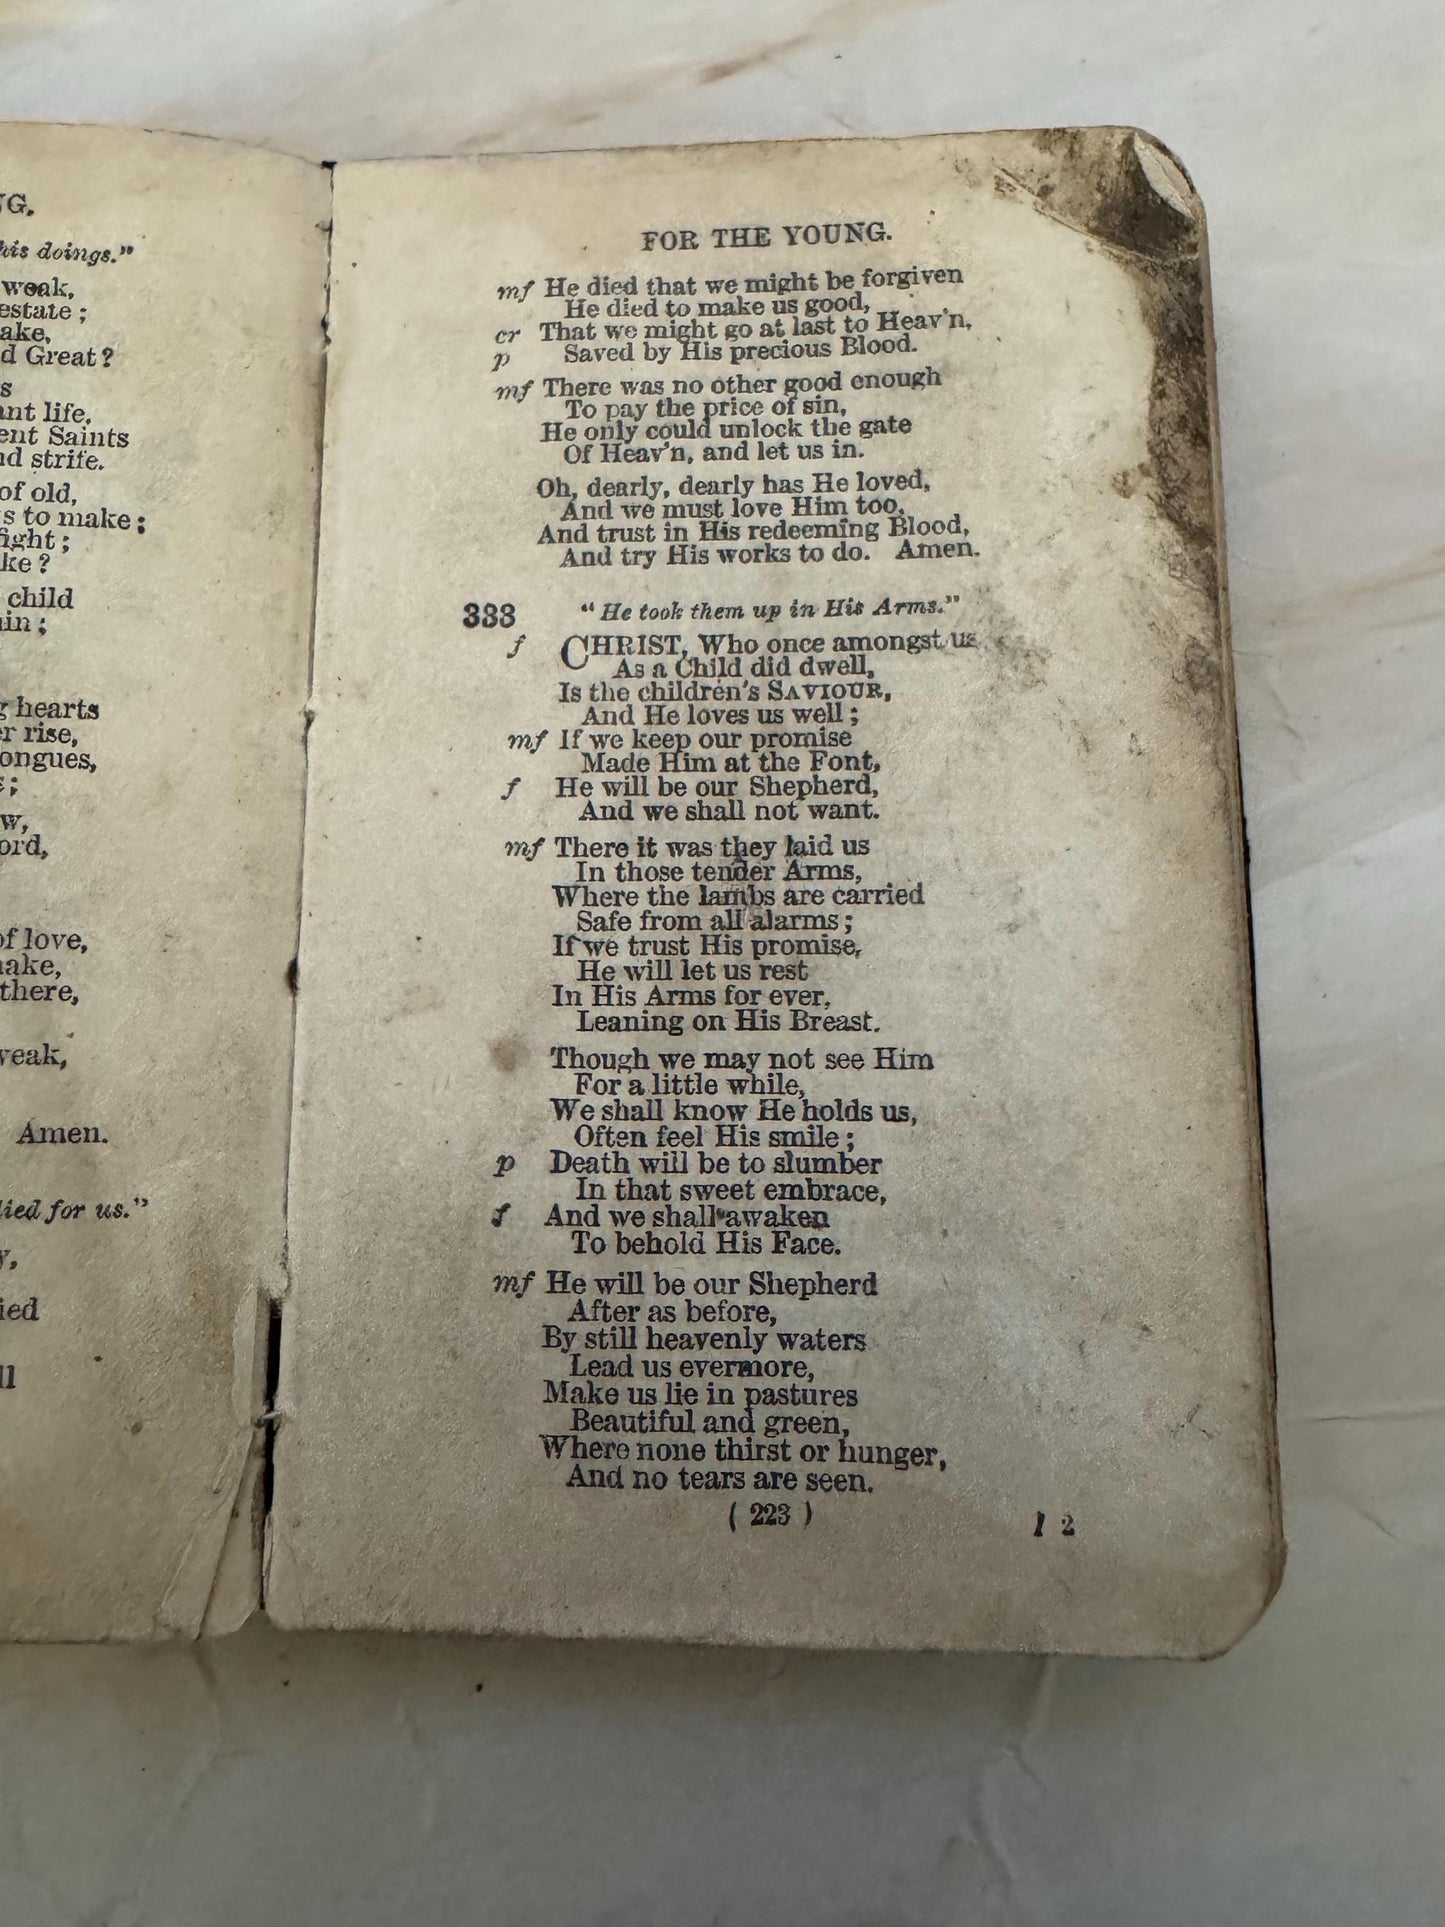 his doings."
weak,
estate;
d Great?
s
life.
Saints
strife.
of old,
s to make;
ke?
child
hearts
rise,
w,
of love,
there,
Amen.
for us."
FOR THE YOUNG.
mf He died that we might be forgiven
He died to make us good,
cr That we might go at last to Heav'n,
p Saved by His precious Blood.
mf There was no other good enough
To pay the price of sin,
He only could unlock the gate
Of Heav'n, and let us in.
Oh, dearly, dearly has He loved,
And we must love Him too,
And trust in His redeeming Blood,
And try His works to do. Amen.
333 "He took them up in His Arms."
f CHRIST, Who once amongst us
As a Child did dwell,
Is the children's SAVIOUR,
And He loves us well;
mf If we keep our promise
Made Him at the Font,
f He will be our Shepherd,
And we shall not want.
mf There it was they laid us
In those tender Arms,
Where the lambs are carried
Safe from all alarms;
If we trust His promise,
He will let us rest
In His Arms for ever,
Leaning on His Breast.
Though we may not see Him
For a little while,
We shall know He holds us,
Often feel His smile;
p Death will be to slumber
In that sweet embrace,
f And we shall awaken
To behold His Face.
mf He will be our Shepherd
After as before,
By still heavenly waters
Lead us evermore,
Make us lie in pastures
Beautiful and green,
Where none thirst or hunger,
And no tears are seen.
( 223 )
I 2